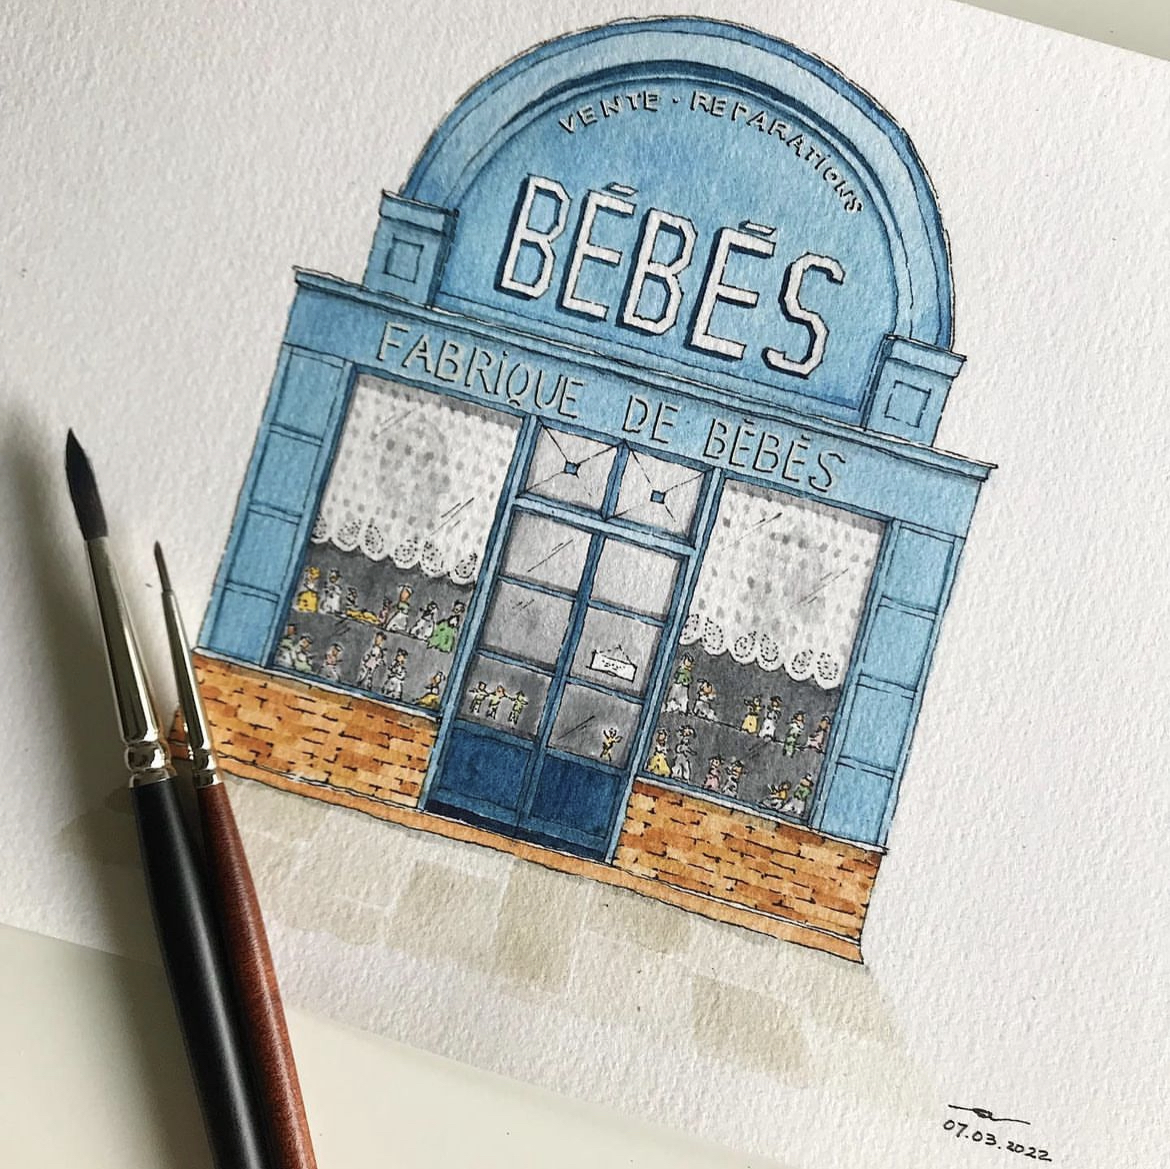 VENTE · REPARATIONS
BÉBÉS
FABRIQUE DE BÉBÉS
07.03.2022